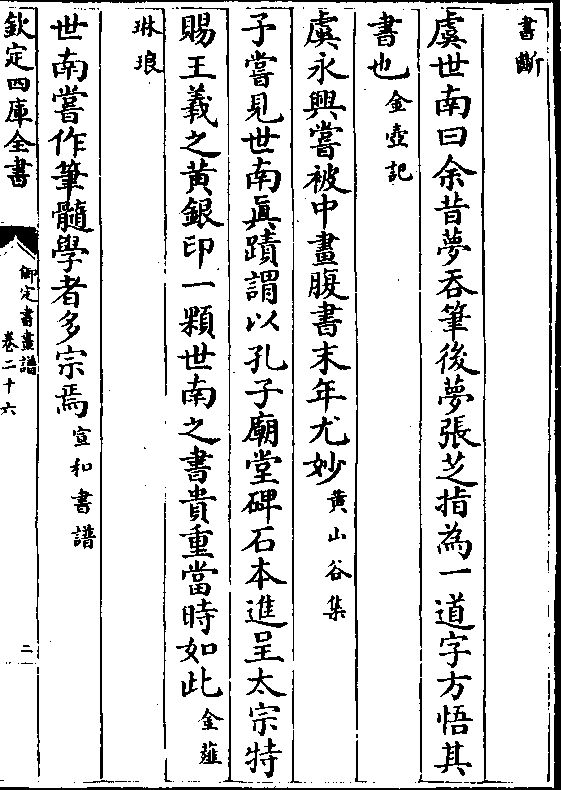 書斷
虞世南曰余昔夢吞筆後夢張芝指為一道字方悟其
書也金壺記
虞永興嘗被中畫腹書末年尤妙黄山谷集
予嘗見世南眞蹟謂以孔子廟堂碑石本進呈太宗特
賜王羲之黄銀印一顆世南之書貴重當時如此金薤
琳琅
世南嘗作筆髓學者多宗焉宣和書譜
欽定四庫全書
御定書畫譜
卷二十六
二